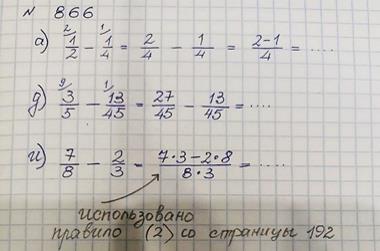 № 866
а) ²1/2 − ¹1/4 = 2/4 − 1/4 = 2−1/4 = ....
д) ⁹3/5 − ¹13/45 = 27/45 − 13/45 = ....
и) 7/8 − 2/3 = 7·3−2·8/8·3 = ....
использовано
правило (2) со страницы 192